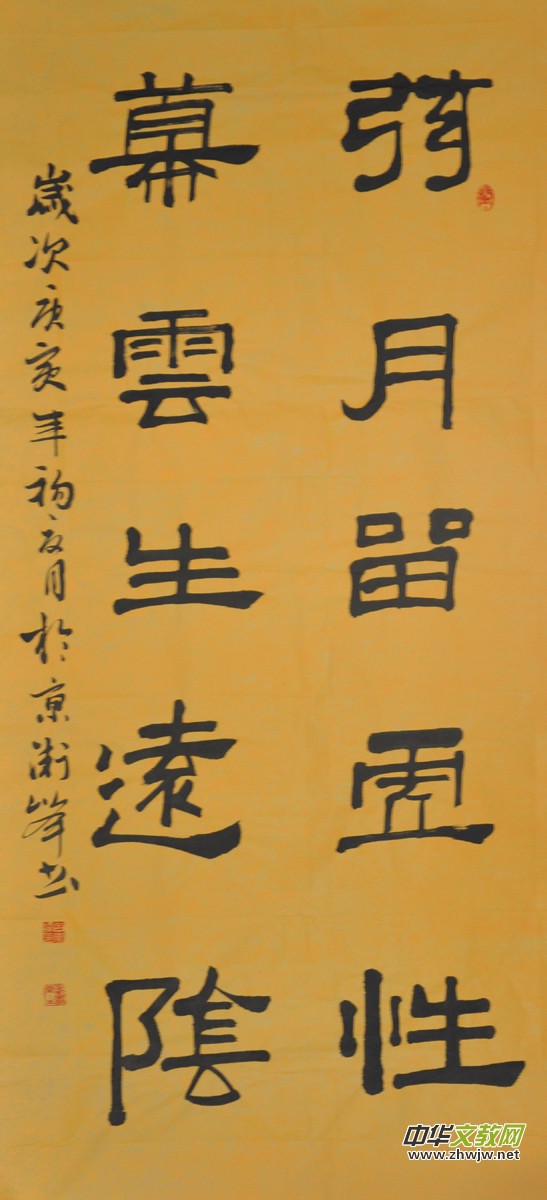 弦月留虛性
幕雲生遠陰
歲次庚寅年初夏月於京衛峰书
中华文教网
www.zhwjw.net